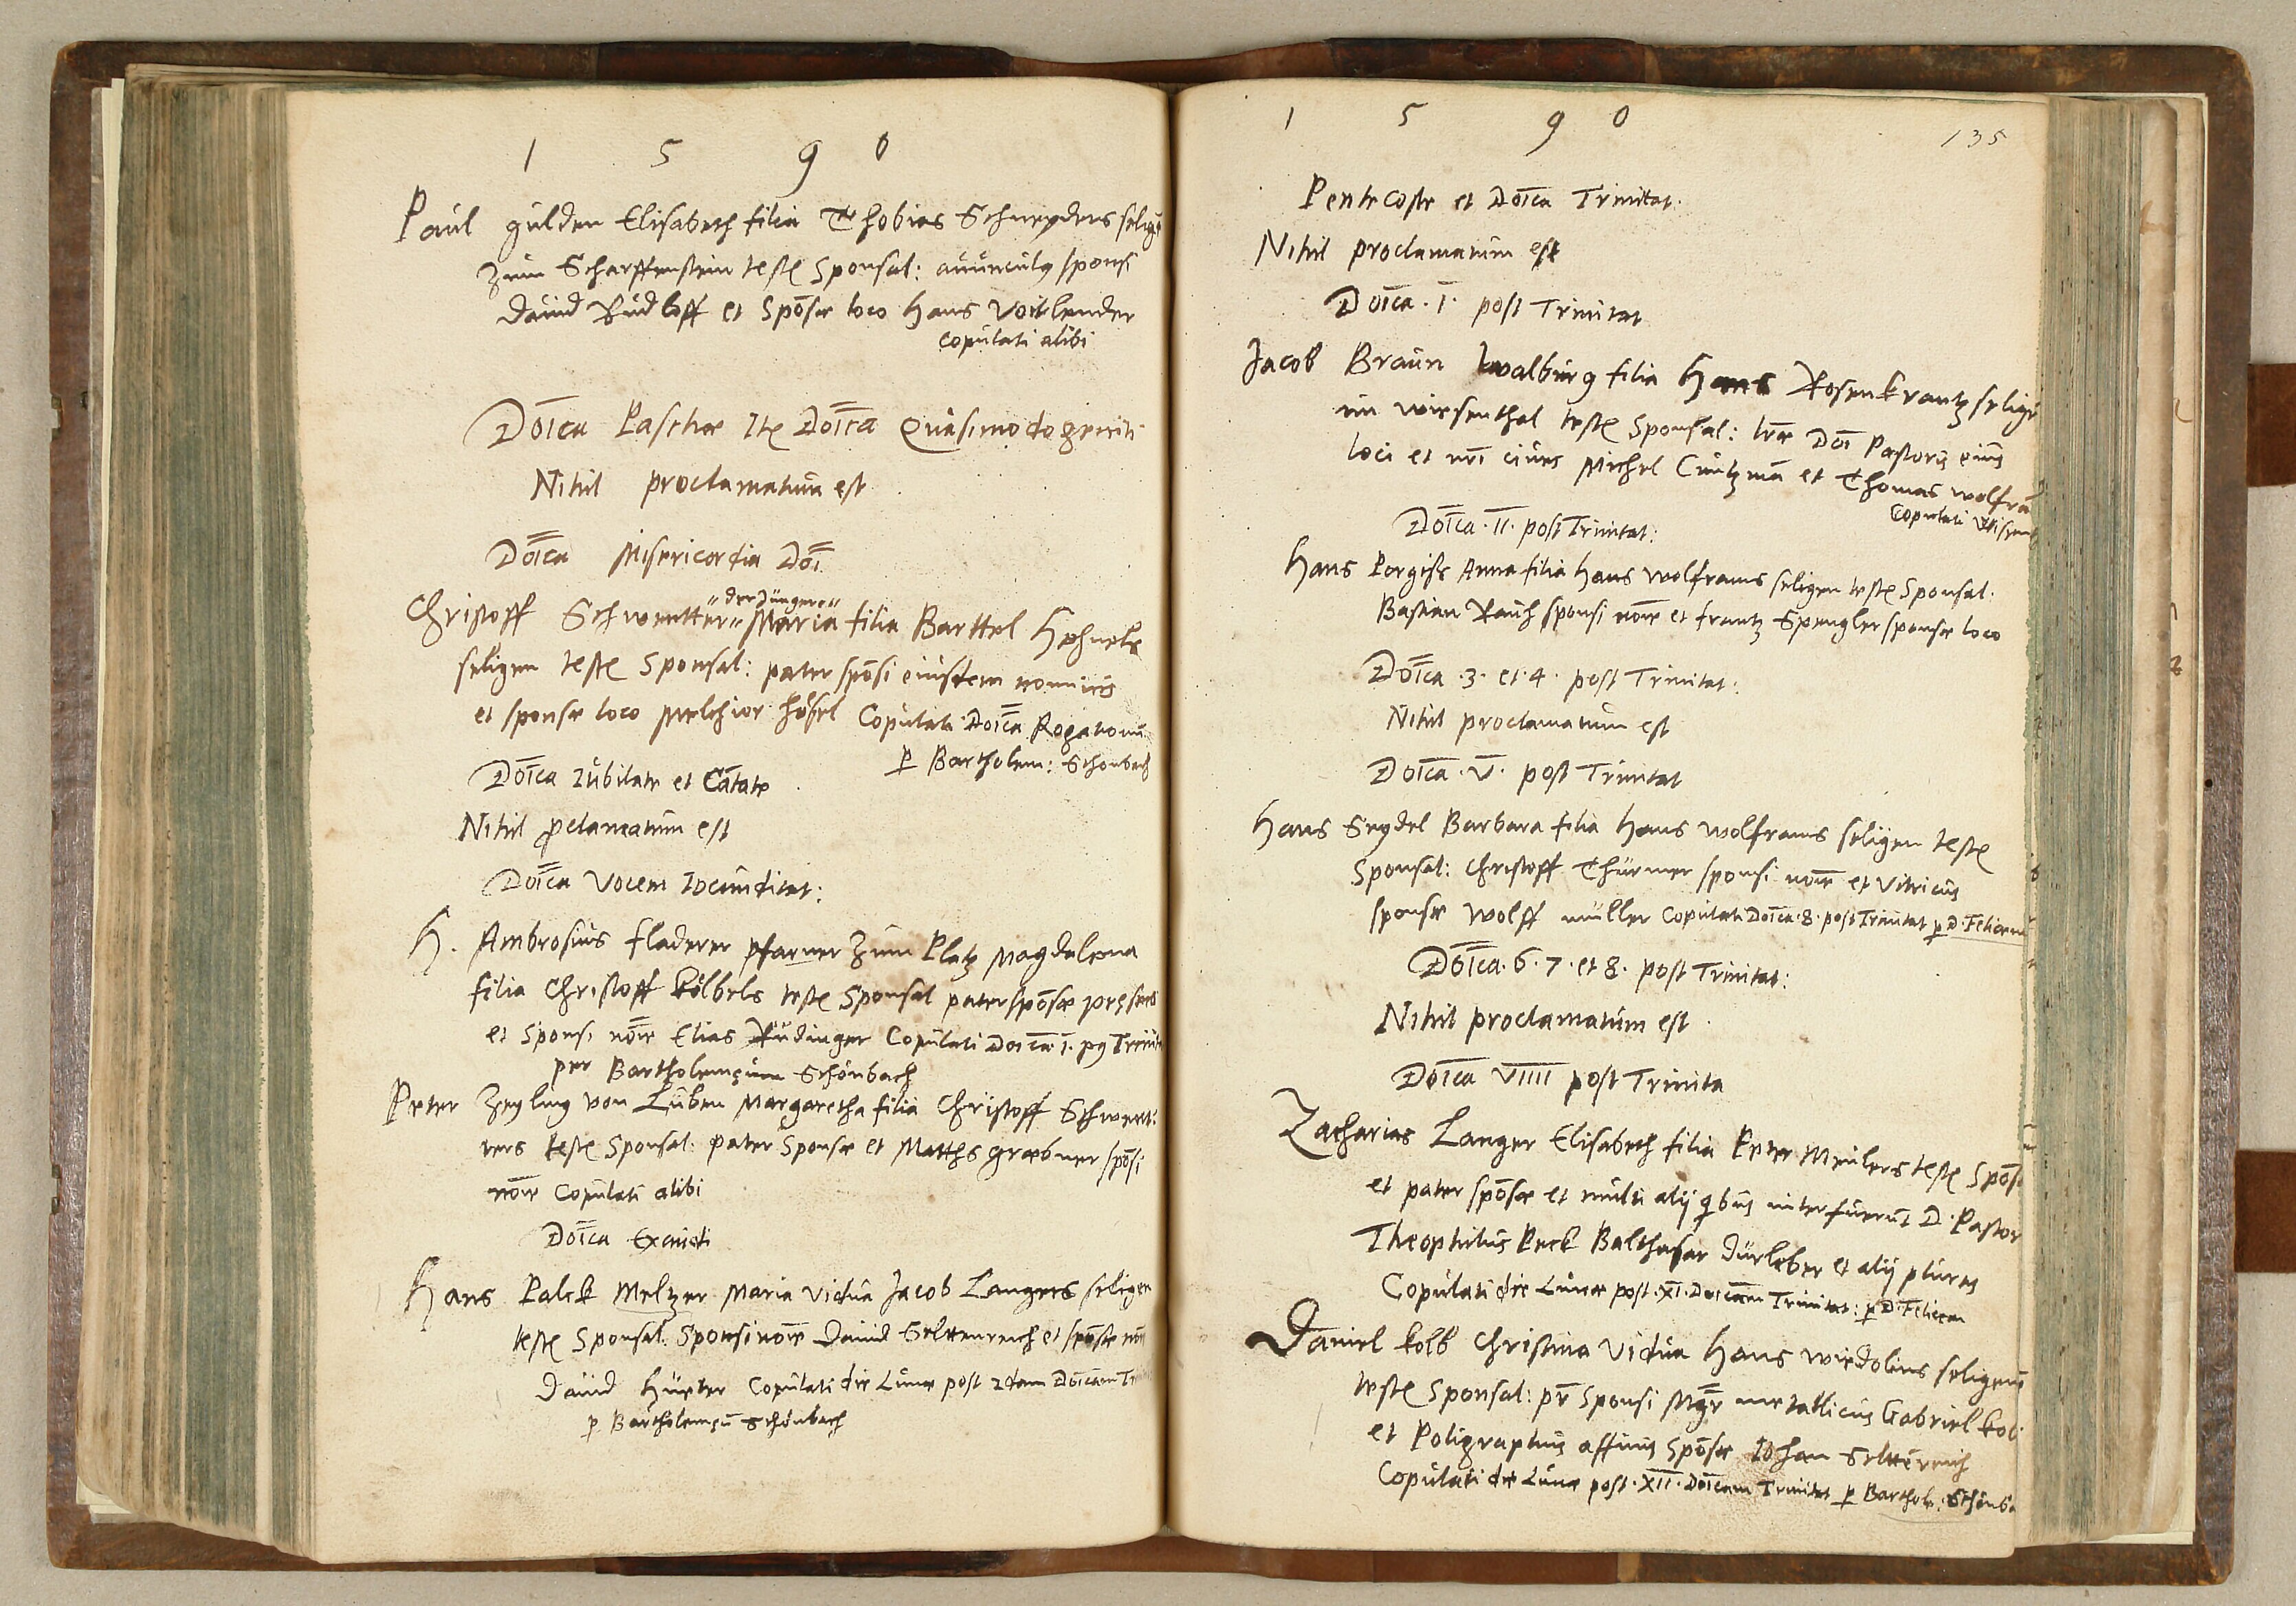 1 5 9 0
Paul gulden Elisabeth filia Thobias Schneyders selig
zum Scharffenstein teste Sponsal: auunculus sponsi
Dauid Rudloff et Spōsæ loco Hans Voitlender
Copulati alibi
Doīca Paschæ Ite Doīca Quasimodogeniti
Nihil proclamatum est
Doīca Misericordia Doī
"der Jüngere"
Christoff Schwertter "Maria filia Barttel Hehnels
seligen teste Sponsal: pater spōsi eiusdem nominis
et sponsæ loco Melchior Hösel Copulati Doīca Rogationū
p Bartholem: Schonbach
Doīca Iubilate et Cātate
Nihil proclamatum est
Doīca Vocem Iocunditat:
H. Ambrosius fladerer pfarner zum Platz Magdalena
filia Christoff kölbels teste Sponsal pater spōsæ præsens
et Sponsi noīe Elias Rudinger Copulati Doīca 1. p9 Trinit
per Bartholemęum Schönbach
Peter Zeyling von Lüben Margaretha filia Christoff Schwert:
ters teste Sponsal. pater Sponsæ et Matths Græbner spōsi
noīe Copulati alibi
Doīca Exaudi
Hans Palck Meltzer Maria Vidua Jacob Langers seligen
teste Sponsal. Sponsi noīe Dauid Seltenreich et spōsæ
Dauid Hüeter Copulati die Lunæ post 2dam Doīcam
p Bartholemęū Schönbach
1 5 9 0
135
Pentecoste et Doīca Trinitat.
Nihil proclamatum est
Doīca. I. post Trinitat
Jacob Braun Walburg filia Hans Rosenkrantz selig
im wiesenthal teste Sponsal: lræ Doī Pastoris eius
loci et nrī ciues Michel Cuntzmā et Thomas wolfra
Copulati
Doīca. II. post Trinitat:
Hans Porgiss Anna filia Hans Wolframs seligen teste Sponsal.
Bastian Rauh sponsi noīe et frantz Spengler sponsæ loco
Doīca .3. et .4. post Trinitat:
Nihil proclamatum est
Doīca. V. post Trinitat
Hans Seydel Barbara filia Hans wolframs seligen teste
Sponsal: Christoff Thürmer sponsi noīe et Vitricus
sponsæ Wolff muller Copulati Doīca. 8. post Trinitat p D. Felicem
Doīca. 6. 7. et 8. post Trinitat:
Nihil proclamatum est.
Doīca VIIII post Trinita
Zacharias Langer Elisabeth filia Peter Meulers teste Spōs
et pater spōsæ et multi alij qbus interfuerūt D. Pastor
Theophilus Peck Balthasar Dürleber et alij plures
Copulati die Lunæ post. XI. Doīcam Trinitat: p D. Felicem
Daniel kolb Christina Vidua Hans wiedolins seligenn
teste Sponsal: pr Sponsi Mgr metallicus Gabriel kol
et Poligraphus affinis Spōsæ Johan Seltenreich
Copulati die Lunæ post. XII. Doīcam Trinitat p Barthole: Schönba